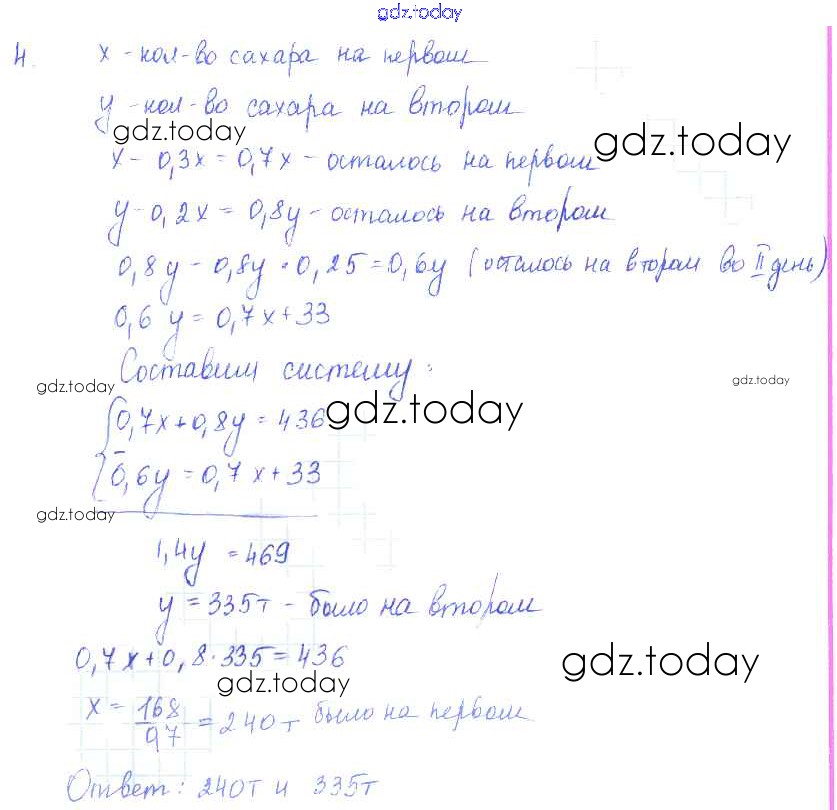 gdz.today
4. x - кол-во сахара на первом
y - кол-во сахара на втором
gdz.today
gdz.today
x - 0,3x = 0,7x - осталось на первом
y - 0,2x = 0,8y - осталось на втором
0,8y - 0,8y · 0,25 = 0,6y (осталось на втором во II день)
0,6 y = 0,7x + 33
Составим систему:
gdz.today
gdz.today
{0,7x + 0,8y = 436
gdz.today
{0,6y = 0,7x + 33
gdz.today
1,4y = 469
y = 335т - было на втором
0,7x + 0,8 · 335 = 436
gdz.today
gdz.today
x = 168/97 = 240т было на первом
Ответ: 240т и 335т